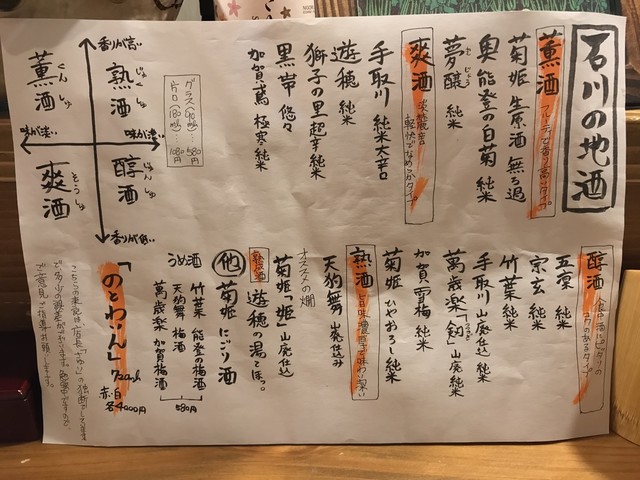 石川の地酒
薫酒 フルーティで香り高いタイプ
菊姫 生原酒 無ろ過
奥能登の白菊 純米
夢醸 純米
むじょう
爽酒 淡麗辛口 軽快でなめらかタイプ
手取川 純米大辛口
遊穂 純米
獅子の里 超辛純米
黒帯 悠々
加賀鳶 極寒純米
グラス(90ml) 580円
片口(180ml) 1080円
香りが高い
熟酒
じゅくしゅ
薫酒
くんしゅ
味が濃い
味が淡い
醇酒
じゅんしゅ
爽酒
そうしゅ
香りが低い
醇酒 コクのあるタイプ
五凛 純米
宗玄 純米
竹葉 純米
手取川 山廃仕込 純米
萬歳楽「剱」山廃 純米
加賀雪梅 純米
菊姫 ひやおろし純米
熟酒 旨味濃厚で味わい深い
天狗舞 山廃仕込み
オススメの燗
菊姫「姫」山廃仕込
熟成酒 遊穂の湯でほっ。
他 菊姫 にごり酒
うめ酒
竹葉 能登の梅酒
天狗舞 梅酒
萬歳楽 加賀梅酒
580円
「のとわいん」
720ml
赤・白
各4000円
こちらの表記は、店長の独断でしてます
で多少の誤差があります。勉強中ですので、
ご意見、ご指導お願いします。